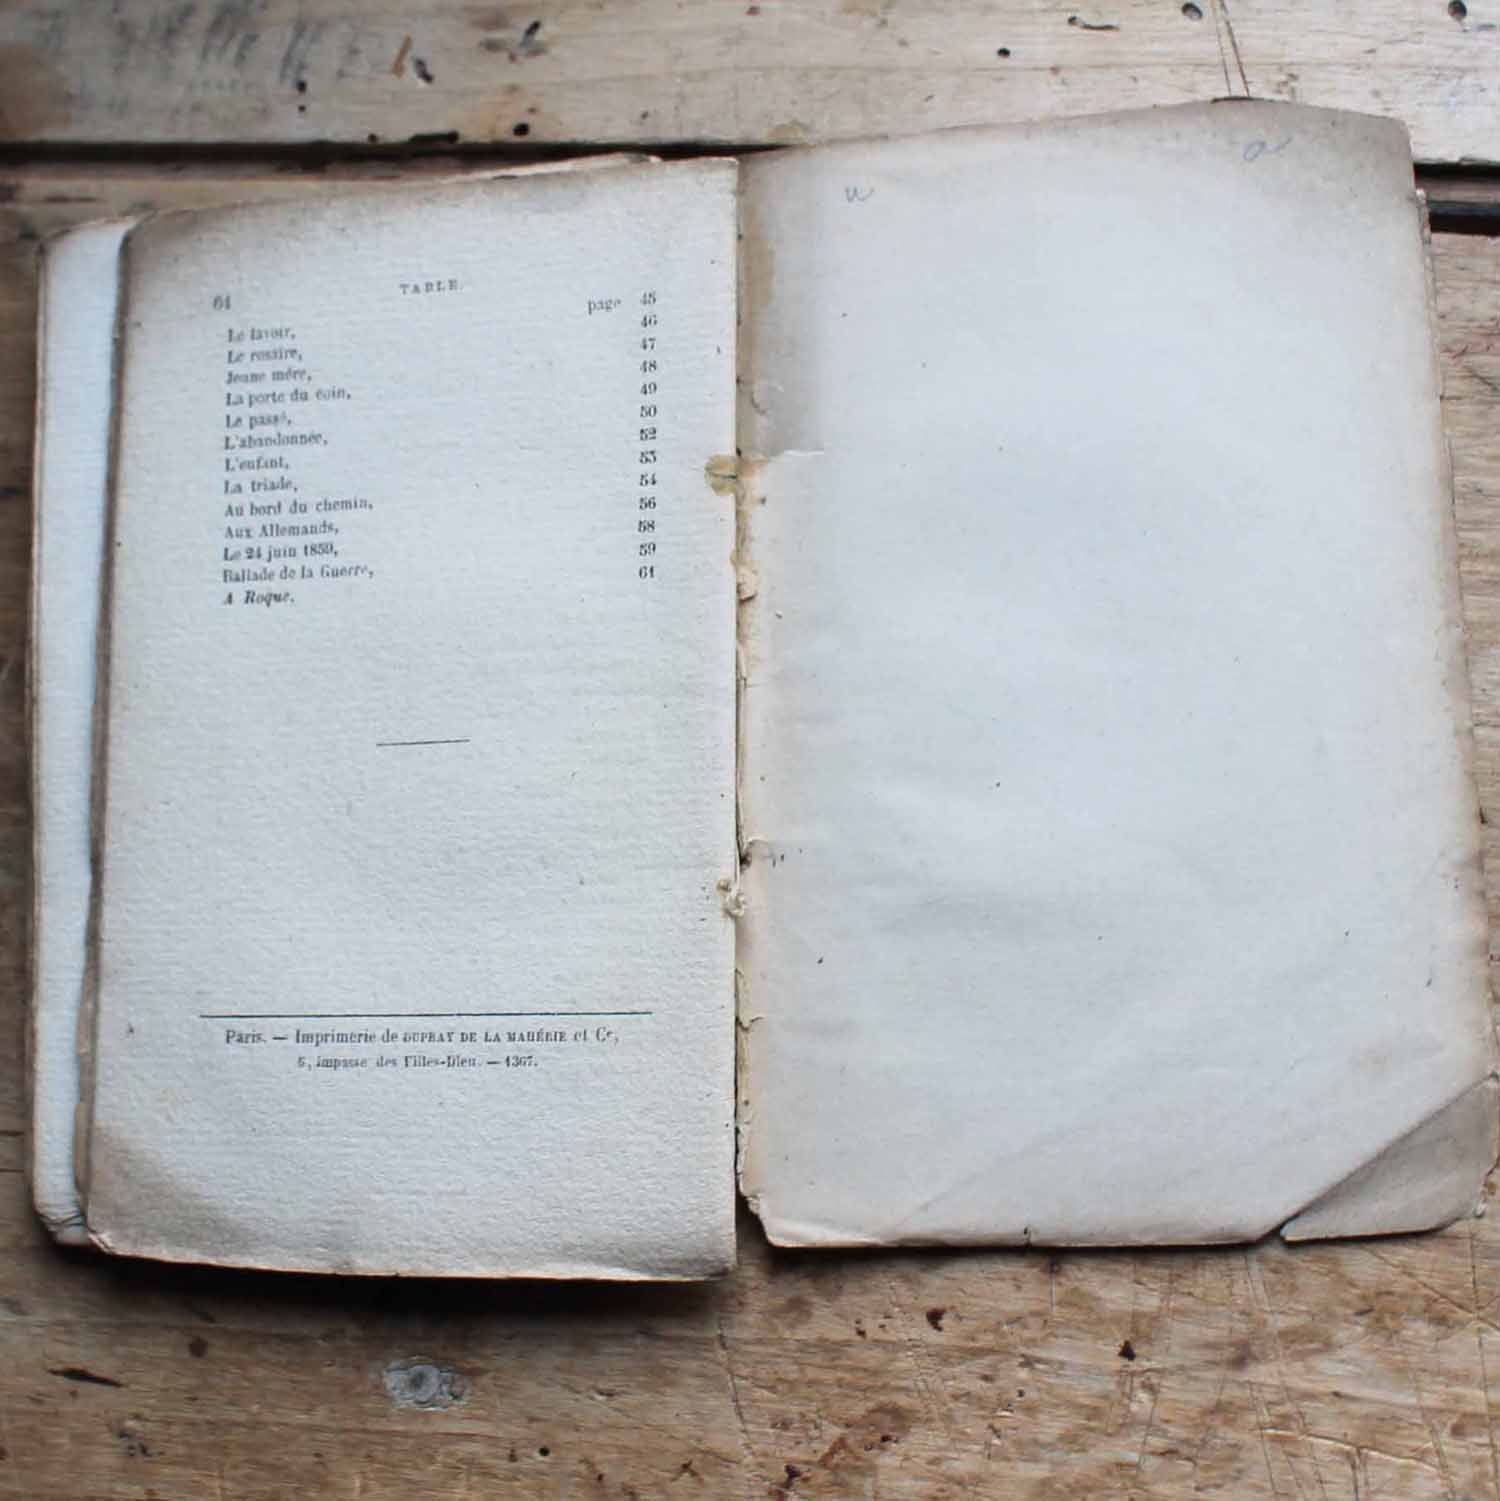 64
TABLE.
Le lavoir, page 45
Le rosaire, 46
Jeune mère, 47
La porte du coin, 48
Le passé, 49
L'abandonnée, 50
L'enfant, 52
La triade, 53
Au bord du chemin, 54
Aux Allemands, 56
Le 24 juin 1859, 58
Ballade de la Guerre, 59
A Roque. 61
Paris. — Imprimerie de DUPRAY DE LA MAHÉRIE et Cᵉ,
6, impasse des Filles-Dieu. — 1367.